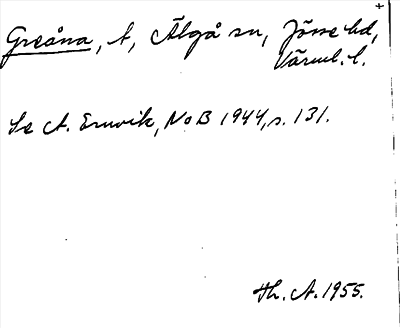 +
Greåna, å, Älgå sn, Jösse hd,
Värml. l.
Se A. Ernvik, NoB 1944, s. 131.
Th. A. 1955.